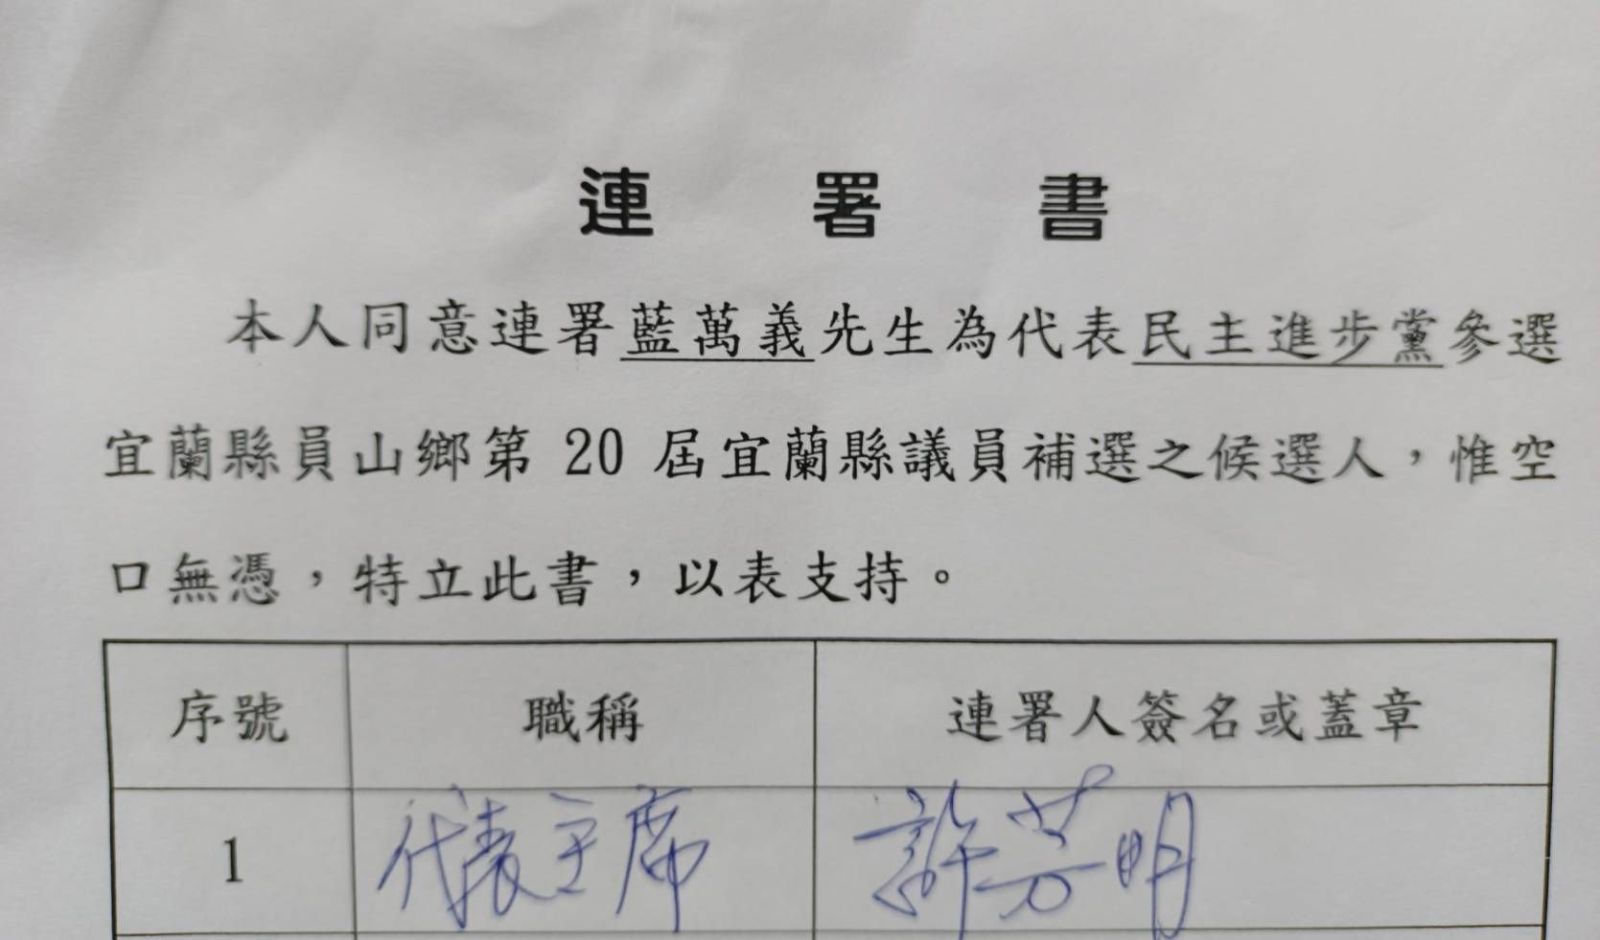 連署書
本人同意連署藍萬義先生為代表民主進步黨參選
宜蘭縣員山鄉第 20 屆宜蘭縣議員補選之候選人，惟空
口無憑，特立此書，以表支持。
序號 職稱 連署人簽名或蓋章
1 代表主席 許芳明